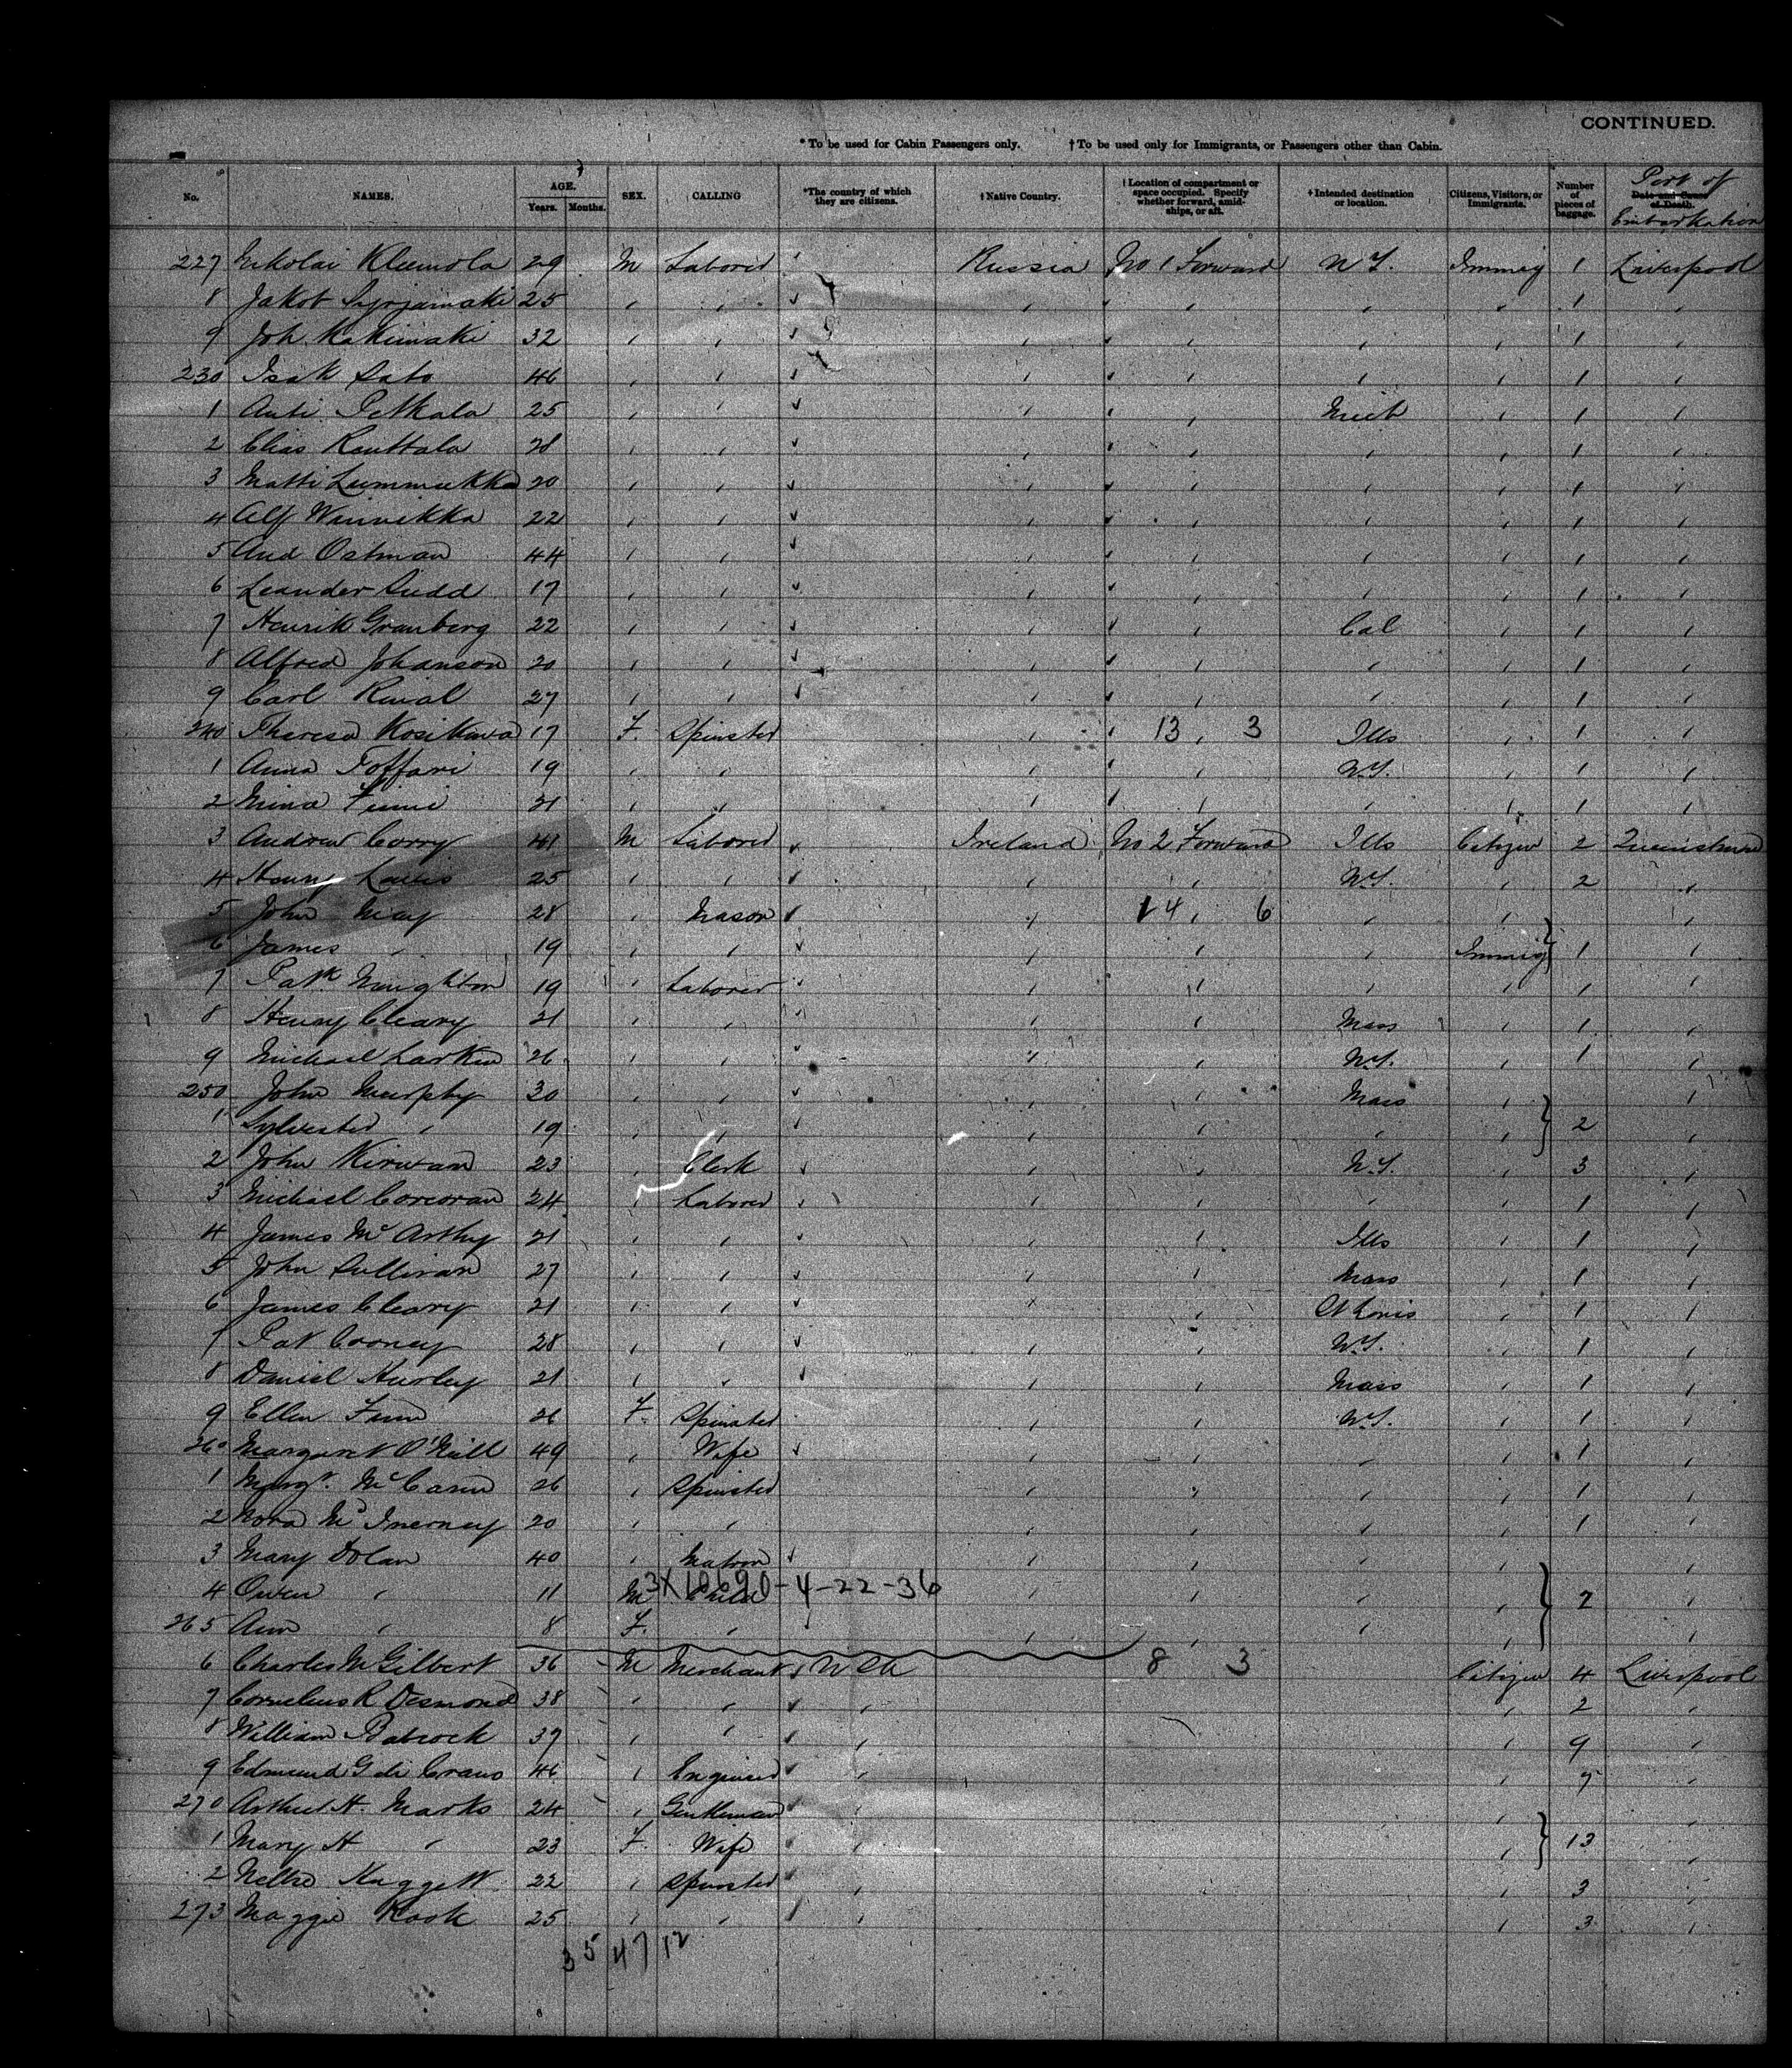 CONTINUED.
* To be used for Cabin Passengers only. † To be used only for Immigrants, or Passengers other than Cabin.
No. NAMES. AGE. Years. Months. SEX. CALLING *The country of which they are citizens. † Native Country. † Location of compartment or space occupied. Specify whether forward, amidships, or aft. † Intended destination or location. Citizens, Visitors, or Immigrants. Number of pieces of baggage. Date and Cause of Death. Port of Embarkation
227 Nikolai Kleemola 29 M Laborer Russia No 1 Forward N.Y. Immig 1 Liverpool
8 Jakob 25 , , , , , , 1 ,
9 Joh. 32 , , , , , , 1 ,
230 Isak Sato 46 , , , , , , 1 ,
1 Anti Petkala 25 , , , , Mich , 1 ,
2 Elias Rauttala 28 , , , , , , 1 ,
3 Matti 20 , , , , , , 1 ,
4 Alf 22 , , , , , , 1 ,
5 And Ostman 44 , , , , , , 1 ,
6 Leander Sudd 17 , , , , , , 1 ,
7 Henrik Granberg 22 , , , , Cal , 1 ,
8 Alfred Johanson 20 , , , , , , 1 ,
9 Carl 27 , , , , , , 1 ,
240 Theresa 17 F. Spinster , 13 , 3 Ills , 1 ,
1 Anna Toffari 19 , , , , N.Y. , 1 ,
2 Mina 21 , , , , , , 1 ,
3 Andrew Corry 41 M Laborer Ireland No 2 Forward Ills Citizen 2 Queenstown
4 Henry 25 , , , , N.Y. , 2 ,
5 John May 28 , Mason , 14 , 6 , , ,
6 James , 19 , , , , , Immig 1 ,
7 Patk Naughton 19 , Laborer , , , , 1 ,
8 Henry Cleary 21 , , , , Mass , 1 ,
9 Michael Larkin 26 , , , , N.Y. , 1 ,
250 John Murphy 30 , , , , Mass , ,
1 Sylvester , 19 , , , , , , 2 ,
2 John Kirwan 23 , Clerk , , N.Y. , 3 ,
3 Michael Corcoran 24 , Laborer , , , , 1 ,
4 James McArthy 21 , , , , Ills , 1 ,
5 John Sullivan 27 , , , , Mass , 1 ,
6 James Cleary 21 , , , , St Louis , 1 ,
7 Pat Cooney 28 , , , , N.Y. , 1 ,
8 Daniel Hurley 21 , , , , Mass , 1 ,
9 Ellen Finn 26 F. Spinster , , N.Y. , 1 ,
260 Margaret O'Neill 49 , Wife , , , , 1 ,
1 Margt. McCann 26 , Spinster , , , , 1 ,
2 Nora McInerney 20 , , , , , , 1 ,
3 Mary Dolan 40 , Matron , , , , ,
4 Owen , 11 M Child , , , , 2 ,
3X10690-4-22-36
265 Ann , 8 F. , , , , , ,
6 Charles M Gilbert 36 M Merchant U S A 8 3 Citizen 4 Liverpool
7 Cornelius R Desmond 38 , , , , 2 ,
8 William Babcock 37 , , , , 9 ,
9 Edmund G 46 , Engineer , , 7 ,
270 Arthur H. Marks 24 , Gentleman , , ,
1 Mary H , 23 F. Wife , , 13 ,
2 Nellie Huggett 22 , Spinster , , 3 ,
273 Maggie Rook 25 , , , 3 ,
35 47 12